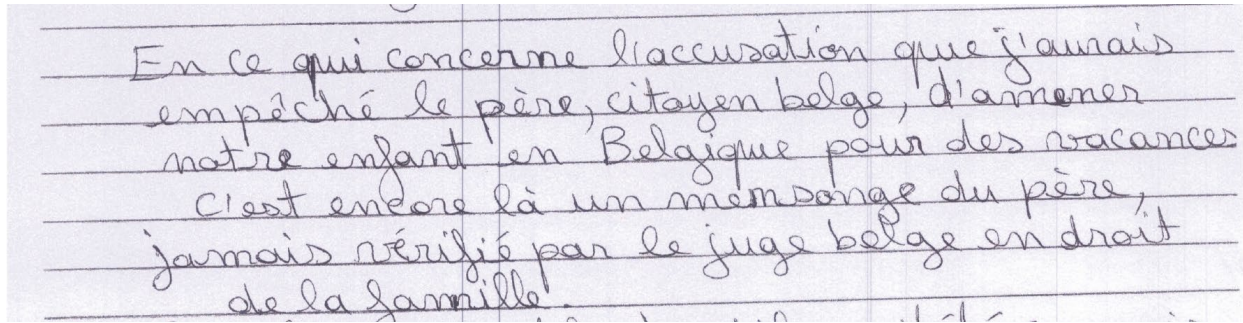 En ce qui concerne l'accusation que j'aurais
empêché le père, citoyen belge, d'amener
notre enfant en Belgique pour des vacances
c'est encore là un mensonge du père,
jamais vérifié par le juge belge en droit
de la famille.